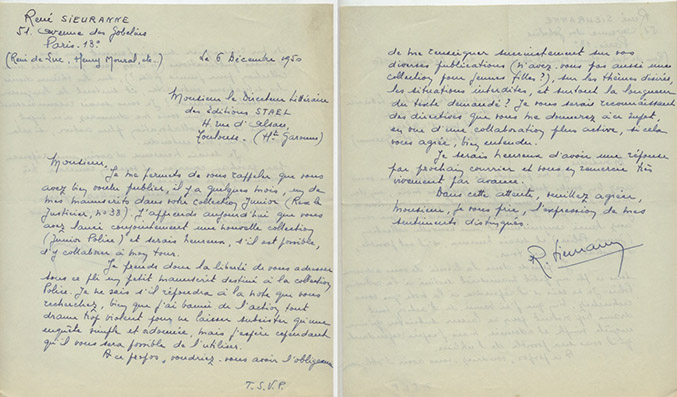 René SIEURANNE
51. avenue des Gobelins
Paris. 13°
(René de Luc. Henry Monval, etc.)
Le 6 Décembre 1950
Monsieur le Directeur Littéraire
des Editions STAEL
4. rue d'Alsace,
Toulouse. (Hte Garonne)
Monsieur,
Je me permets de vous rappeler que vous
avez bien voulu publier, il y a quelques mois, un de
mes manuscrits dans votre collection Junior ( le
Justicier, No 38). J'apprends aujourd'hui que vous
avez lancé conjointement une nouvelle collection
(Junior Police) et serais heureux, s'il est possible,
d'y collaborer à mon tour.
Je prends donc la liberté de vous adresser
sous ce pli un petit manuscrit destiné à la collection
Police. Je ne sais s'il répondra à la note que vous
recherchez, bien que j'ai banni de l'action tout
drame trop violent pour ne laisser subsister qu'une
enquête simple et adoucie, mais j'espère cependant
qu'il vous sera possible de l'utiliser.
A ce propos, voudriez-vous avoir l'obligeance
T.S.V.P.
de me renseigner succinctement sur vos
diverses publications (n'avez-vous pas aussi une
collection pour jeunes filles?), sur les thèmes désirés,
les situations interdites, et surtout la longueur
du texte demandé? Je vous serais reconnaissant
des directives que vous me donnerez à ce sujet,
en vue d'une collaboration plus active, si cela
vous agrée, bien entendu.
Je serais heureux d'avoir une réponse
par prochain courrier et vous en remercie très
vivement par avance.
Dans cette attente, veuillez agréer,
Monsieur, je vous prie, l'expression de mes
sentiments distingués.
R. Sieuranne